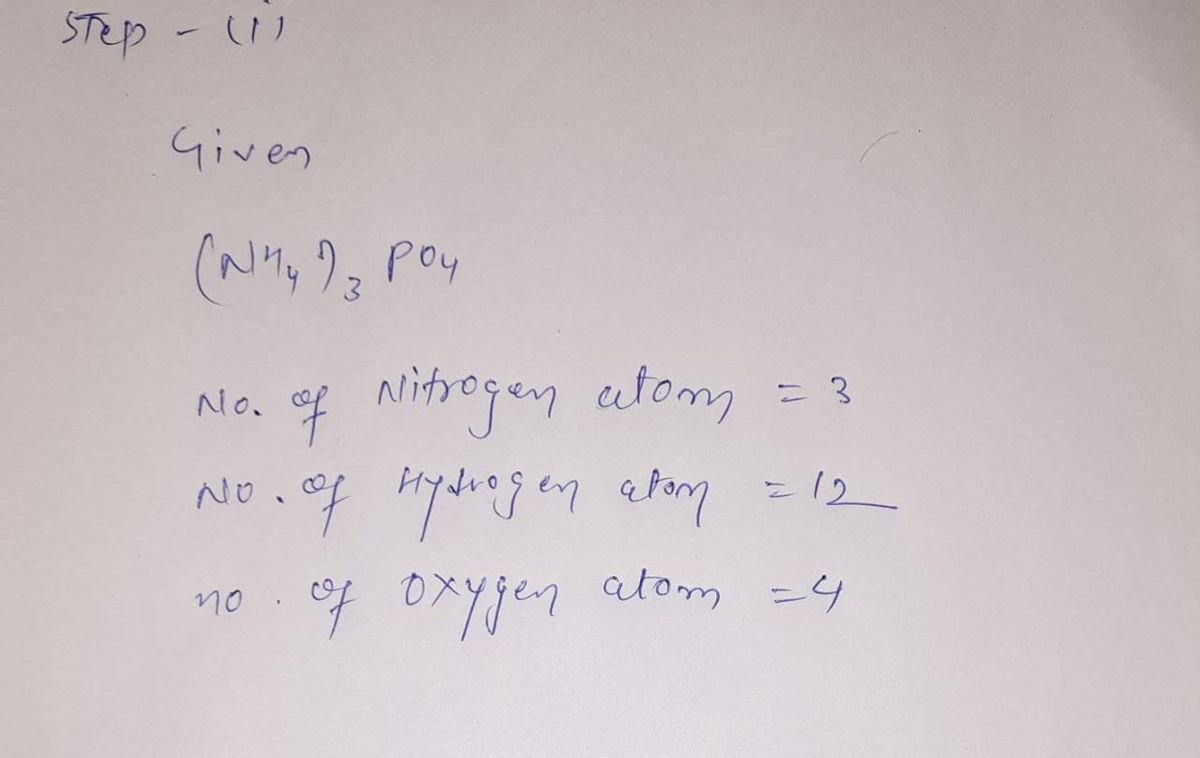 Step - (i)
Given
(NH4)3 PO4
No. of Nitrogen atom = 3
No. of Hydrogen atom = 12
no. of oxygen atom = 4